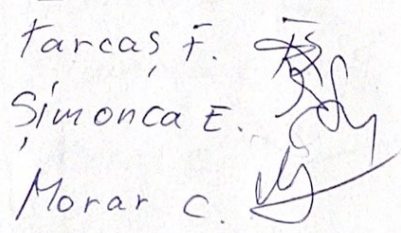 Farcaș F.
Șimonca E.
Morar C.